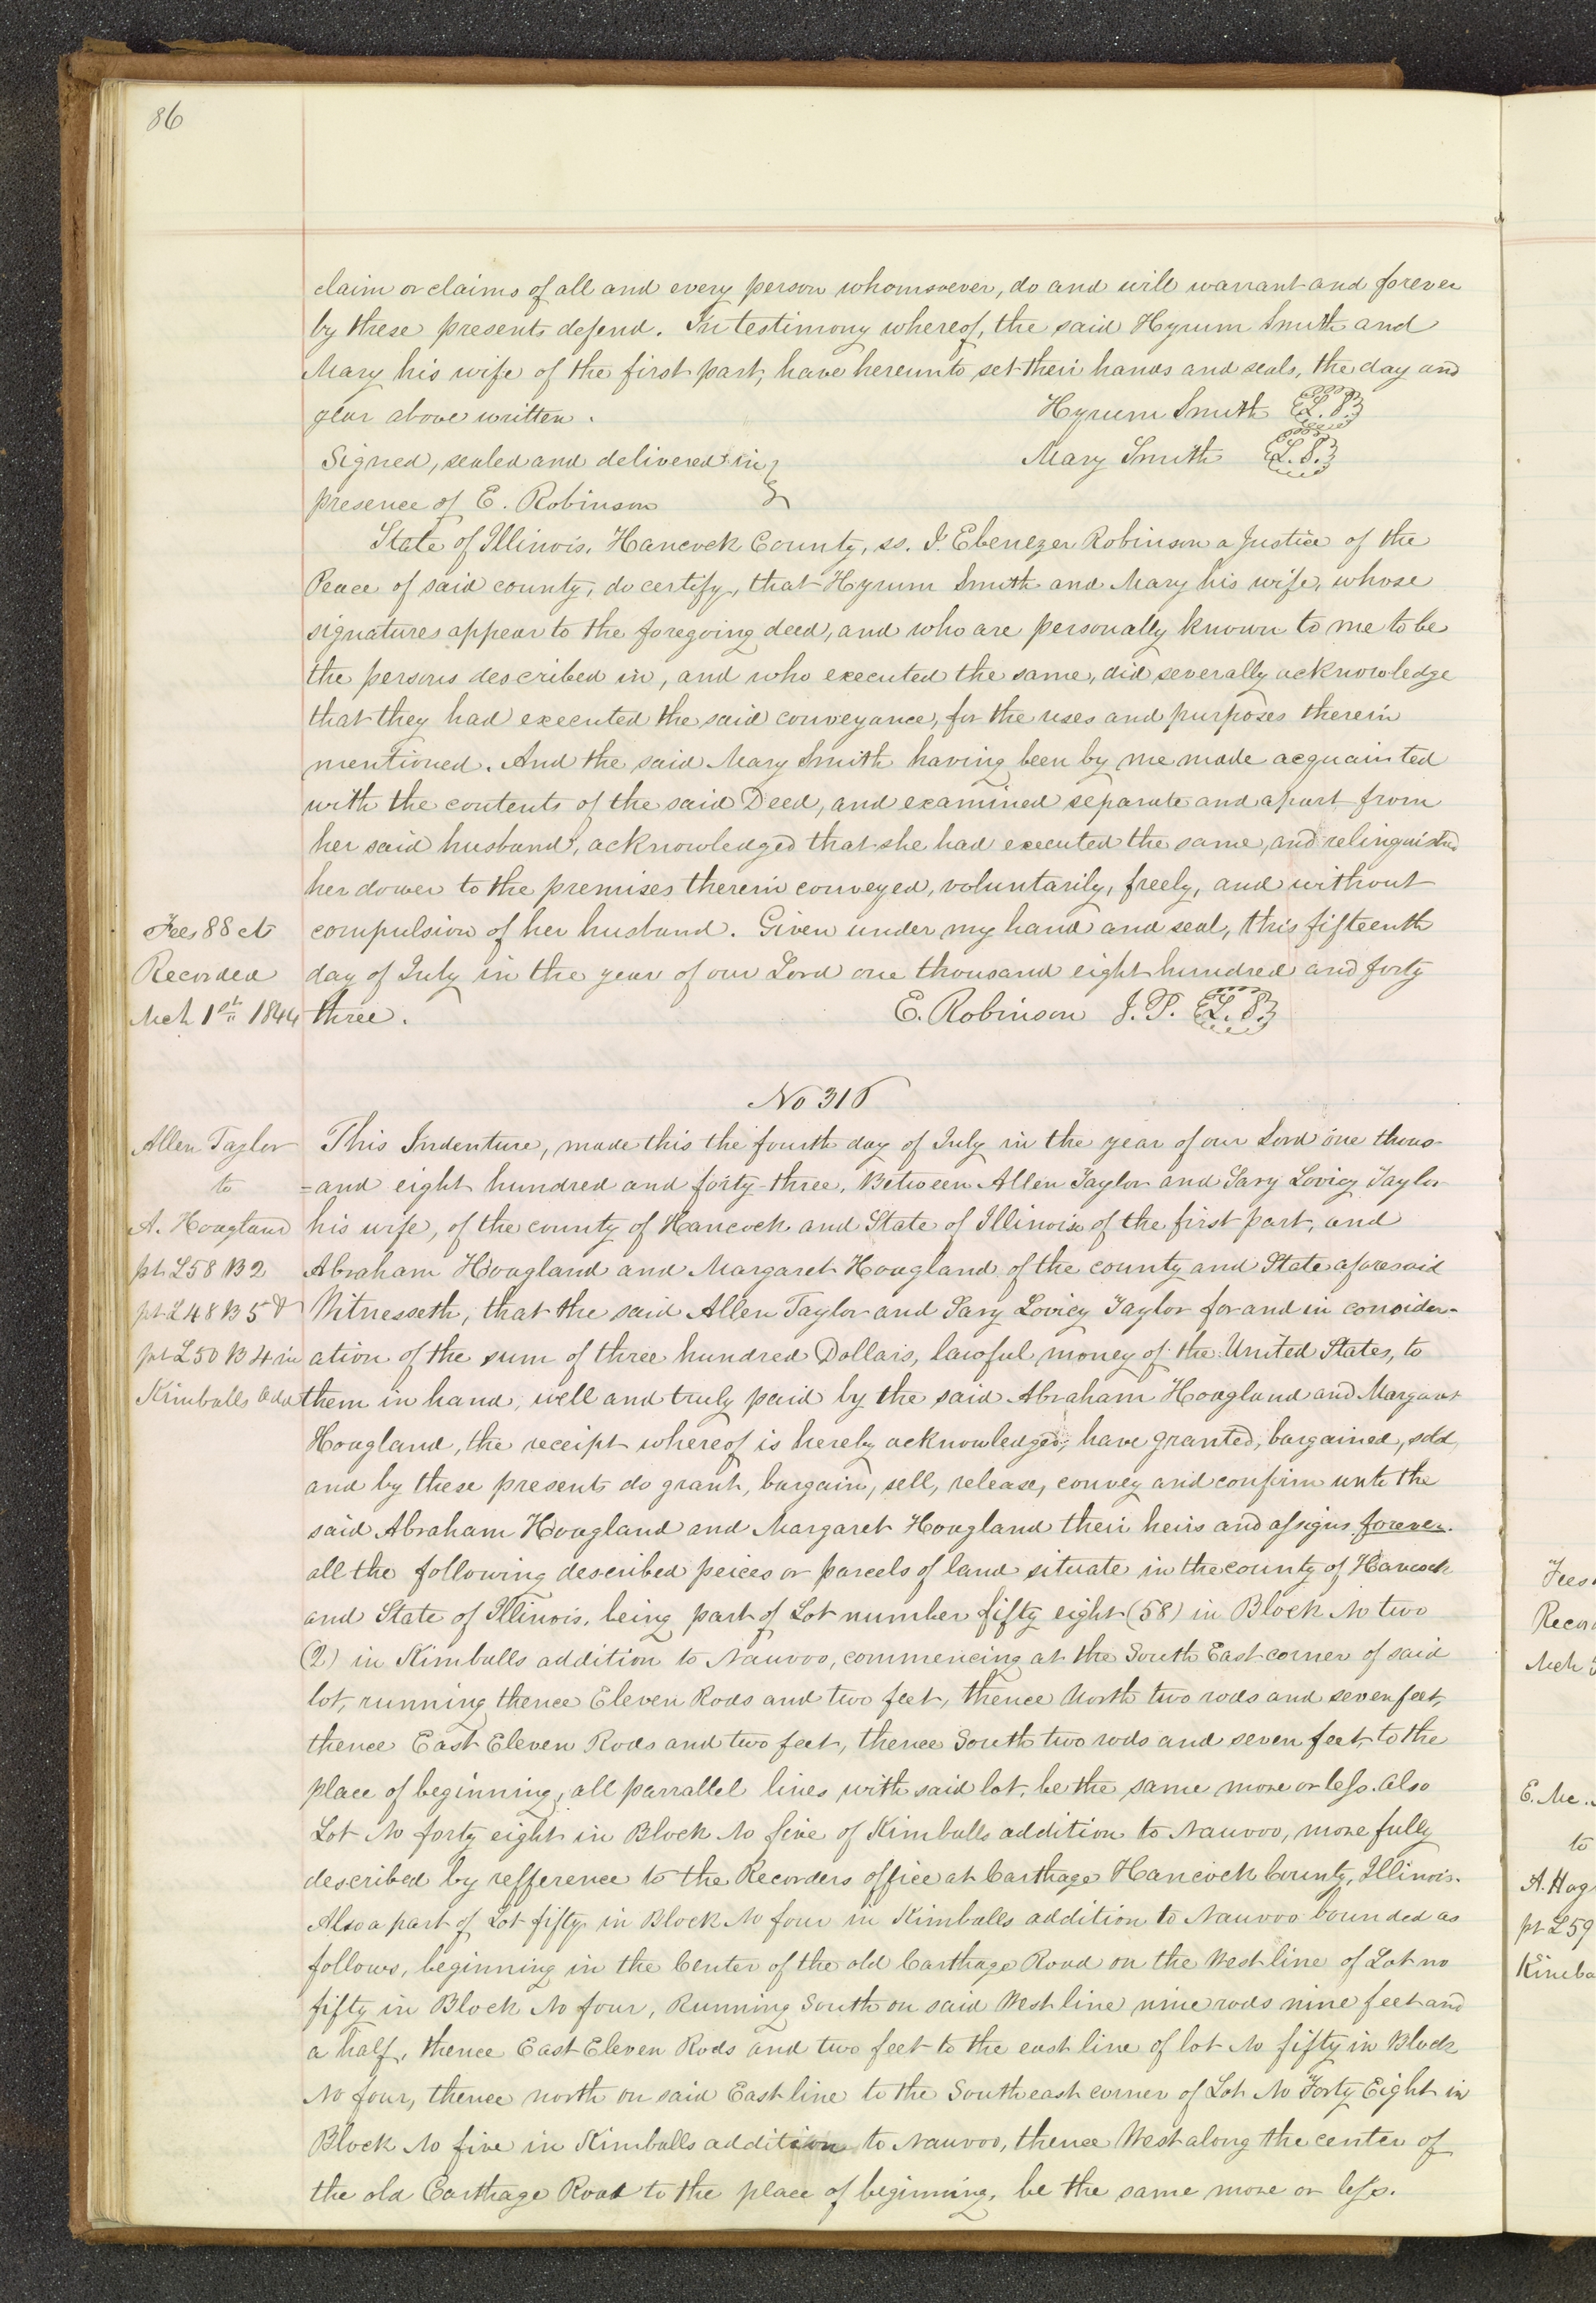 86
claim or claims of all and every person whomsoever, do and will warrant and forever
by these presents defend. In testimony whereof, the said Hyrum Smith and
Mary his wife of the first part, have hereunto set their hands and seals, the day and
year above written. Hyrum Smith L.S.
Signed, sealed and delivered in Mary Smith L.S.
presence of E. Robinson
State of Illinois, Hancock County, ss. I. Ebenezer Robinson a Justice of the
Peace of said county, do certify, that Hyrum Smith and Mary his wife, whose
signatures appear to the foregoing deed, and who are personally known to me to be
the persons described in, and who executed the same, did severally acknowledge
that they had executed the said conveyance, for the uses and purposes therein
mentioned. And the said Mary Smith having been by me made acquainted
with the contents of the said Deed, and examined separate and apart from
her said husband, acknowledged that she had executed the same, and relinquished
her dower to the premises therein conveyed, voluntarily, freely, and without
Fees 88 cts compulsion of her husband. Given under my hand and seal, this fifteenth
Recorded day of July in the year of our Lord one thousand eight hundred and forty
Mch 1st 1844 three. E. Robinson J. P. L.S.
No 316
Allen Taylor This Indenture, made this the fourth day of July in the year of our Lord one thous-
to =and eight hundred and forty-three, Between Allen Taylor and Sary Lovicy Taylor
A. Hoagland his wife, of the county of Hancock and State of Illinois of the first part, and
pt L58 B2 Abraham Hoagland and Margaret Hoagland of the county and State aforesaid
pt L48 B5 & Witnesseth, that the said Allen Taylor and Sary Lovicy Taylor for and in consider-
pt L50 B4 in ation of the sum of three hundred Dollars, lawful money of the United States, to
Kimballs Add them in hand, well and truly paid by the said Abraham Hoagland and Margaret
Hoagland, the receipt whereof is hereby acknowledged, have granted, bargained, sold,
and by these presents do grant, bargain, sell, release, convey and confirm unto the
said Abraham Hoagland and Margaret Hoagland their heirs and assigns forever.
all the following described peices or parcels of land situate in the county of Hancock
and State of Illinois, being part of Lot number fifty eight (58) in Block No two
(2) in Kimballs addition to Nauvoo, commencing at the South East corner of said
lot, running thence Eleven Rods and two feet, thence North two rods and seven feet,
thence East Eleven Rods and two feet, thence South two rods and seven feet, to the
place of beginning, all parrallel lines with said lot, be the same more or less. Also
Lot No forty eight in Block No five of Kimballs addition to Nauvoo, more fully
described by refference to the Recorders office at Carthage Hancock County, Illinois.
Also a part of Lot fifty in Block No four in Kimballs addition to Nauvoo bounded as
follows, beginning in the Center of the old Carthage Road on the West line of Lot no
fifty in Block No four, Running South on said West line nine rods nine feet and
a half, thence East Eleven Rods and two feet to the east line of lot No fifty in Block
No four, thence north on said East line to the South east corner of Lot No Forty Eight in
Block No five in Kimballs addition to Nauvoo, thence West along the center of
the old Carthage Road to the place of beginning, be the same more or less.
Fees
Mch
E. Mc.
to
A. Hog
pt L59